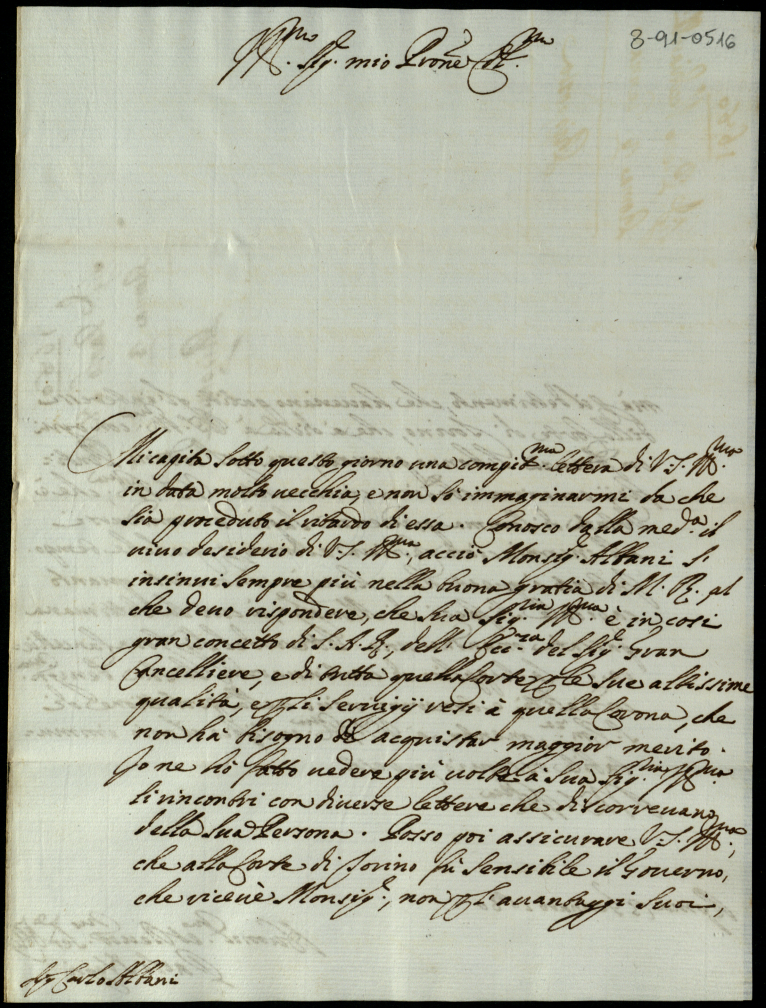 8-91-0516
Ill.mo Sig.r mio Pron.e Col.mo
Mi capita sotto questo giorno una compit.ma lettera di V.S. Ill.ma
in data molto vecchia, e non sò immaginarmi da che
sia proceduto il ritardo di essa. Conosco dalla med.a il
vivo desiderio di V.S. Ill.ma, acciò Monsig.r Albani s'
insinui sempre più nella buona gratia di M. R. al
che devo rispondere, che sua Sig.ria Ill.ma è in così
gran concetto di S.A.R., dell' Ecc.za del Sig.r Gran
Cancelliere, e di tutta quella Corte p le sue altissime
qualità, e p li servigij resi à quella Corona, che
non hà bisogno di acquistar maggior merito.
Io ne hò fatto vedere più volte à Sua Sig.ria Ill.ma
li rincontri con diverse lettere che discorrevano
della sua Persona. Posso poi assicurare V.S. Ill.ma,
che alla Corte di Torino fù sensibile il Governo,
che ricevè Monsig.r, non p l'avantaggi suoi,
Sig.r Carlo Albani